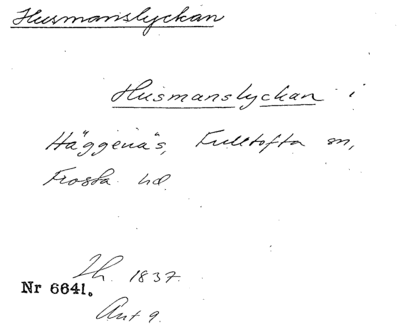 Husmanslyckan
Husmanslyckan i
Häggenäs, Fulltofta sn,
Frosta hd.
Lh. 1837.
Nr 6641.
Ant 9.